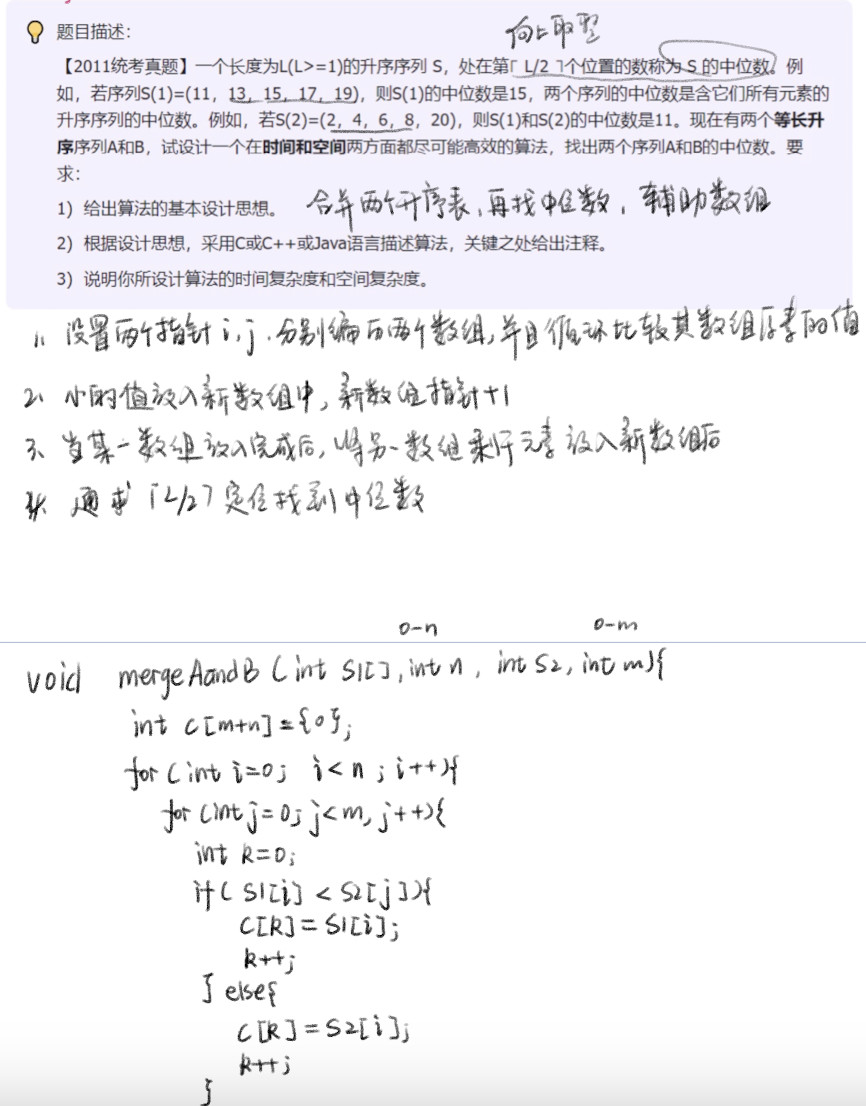 题目描述:
向上取型
【2011统考真题】一个长度为L(L>=1)的升序序列 S，处在第「 L/2 ㄱ个位置的数称为 S 的中位数。例
如，若序列S(1)=(11，13，15，17，19)，则S(1)的中位数是15，两个序列的中位数是含它们所有元素的
升序序列的中位数。例如，若S(2)=(2，4，6，8，20)，则S(1)和S(2)的中位数是11。现在有两个等长升
序序列A和B，试设计一个在时间和空间两方面都尽可能高效的算法，找出两个序列A和B的中位数。要
求:
1) 给出算法的基本设计思想。 合并两个升序表，再找中位数，辅助数组
2) 根据设计思想，采用C或C++或Java语言描述算法，关键之处给出注释。
3) 说明你所设计算法的时间复杂度和空间复杂度。
1、设置两个指针 i,j.分别遍历两个数组,并且循环比较其数组厚素的值
2、小的值放入新数组中，新数组指针+1
3、当某一数组放入完成后,将另一数组剩下元素放入新数组后
4、通求「L/2ㄱ定位找到中位数
0-n 0-m
void mergeAandB (int S1[],int n, int S2, int m){
int c[m+n]={0};
for(int i=0; i<n; i++){
for(int j=0;j<m,j++){
int k=0;
if( S1[i] < S2[j]){
C[k]=S1[i];
k++;
} else{
C[k]=S2[i];
k++;
}